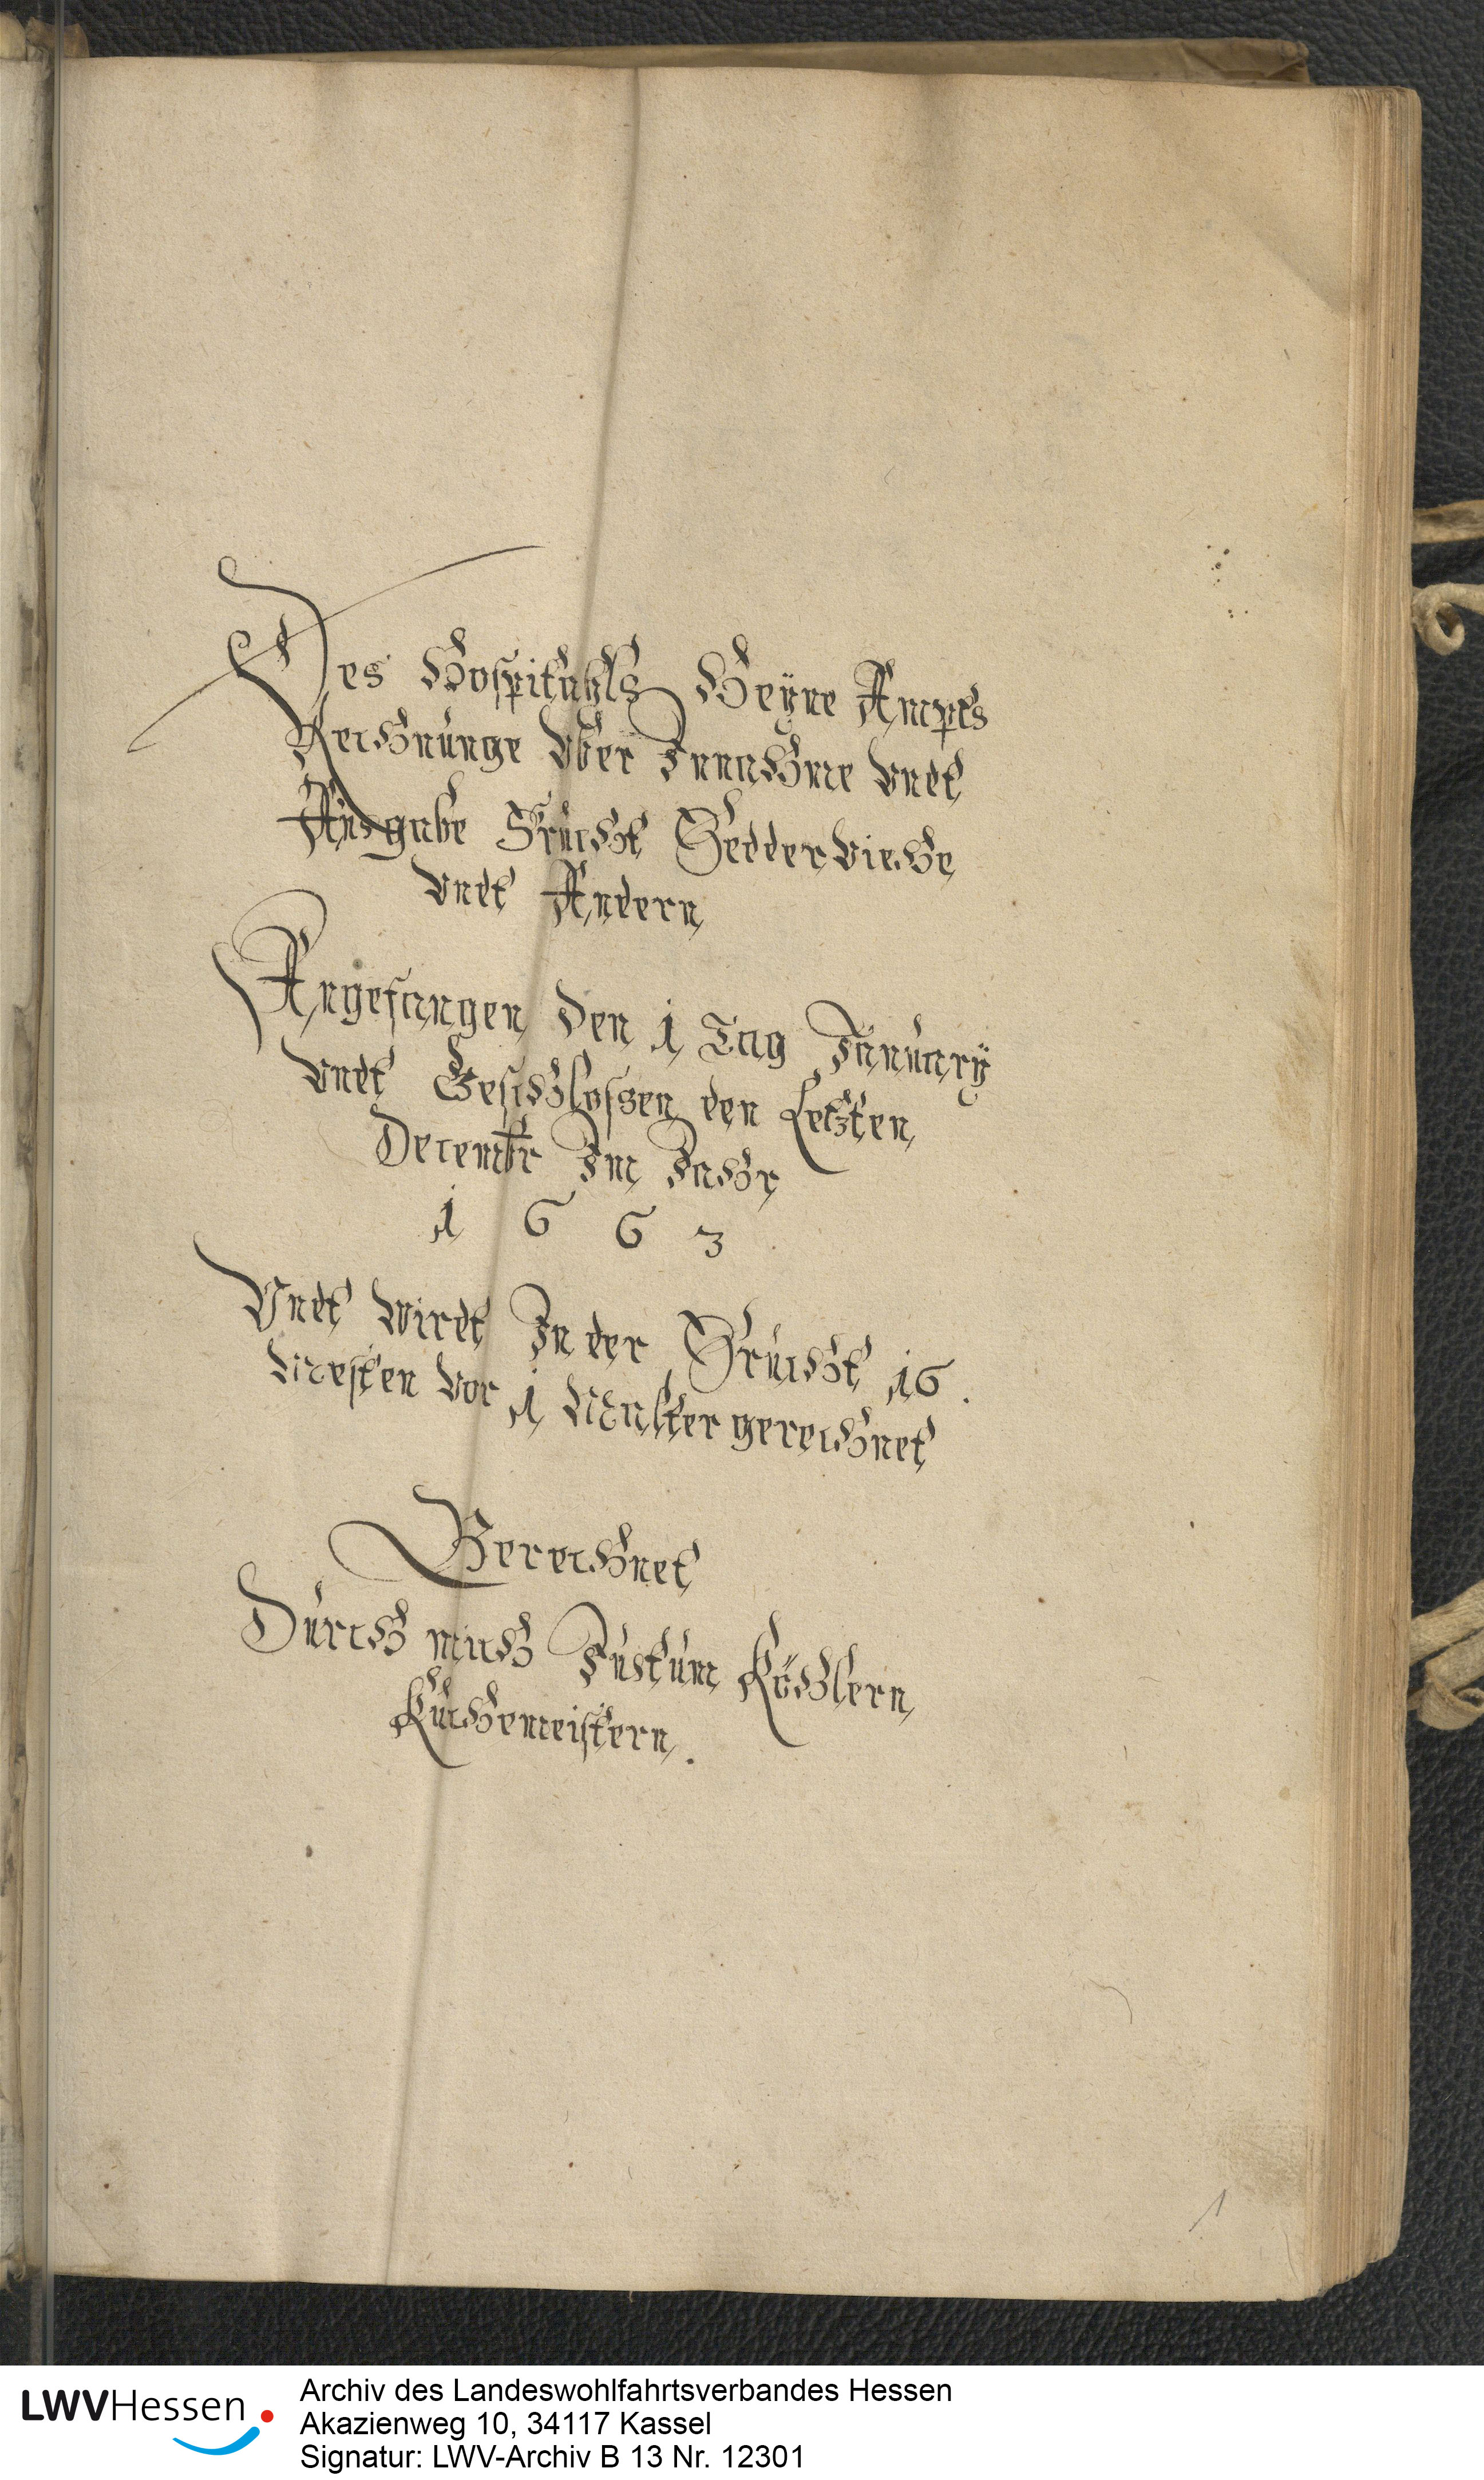 Des Hospitahls Heÿne Ampts
Rechnunge Vber Innahme Vndt
Ausgabe Frucht Fedder Viehe
Vndt Andern
Angefangen Den 1 Tag Januarÿ
Vndt Geschlossen den Letzten
Decembr Im Jahr
1 6 6 3
Vndt Wirdt In der Frucht 16.
Mesten Vor 1 Malter gerechnet
Berechnet
Durch mich Justum Köhlern
Küchemeistern.
1
LWVHessen
Archiv des Landeswohlfahrtsverbandes Hessen
Akazienweg 10, 34117 Kassel
Signatur: LWV-Archiv B 13 Nr. 12301